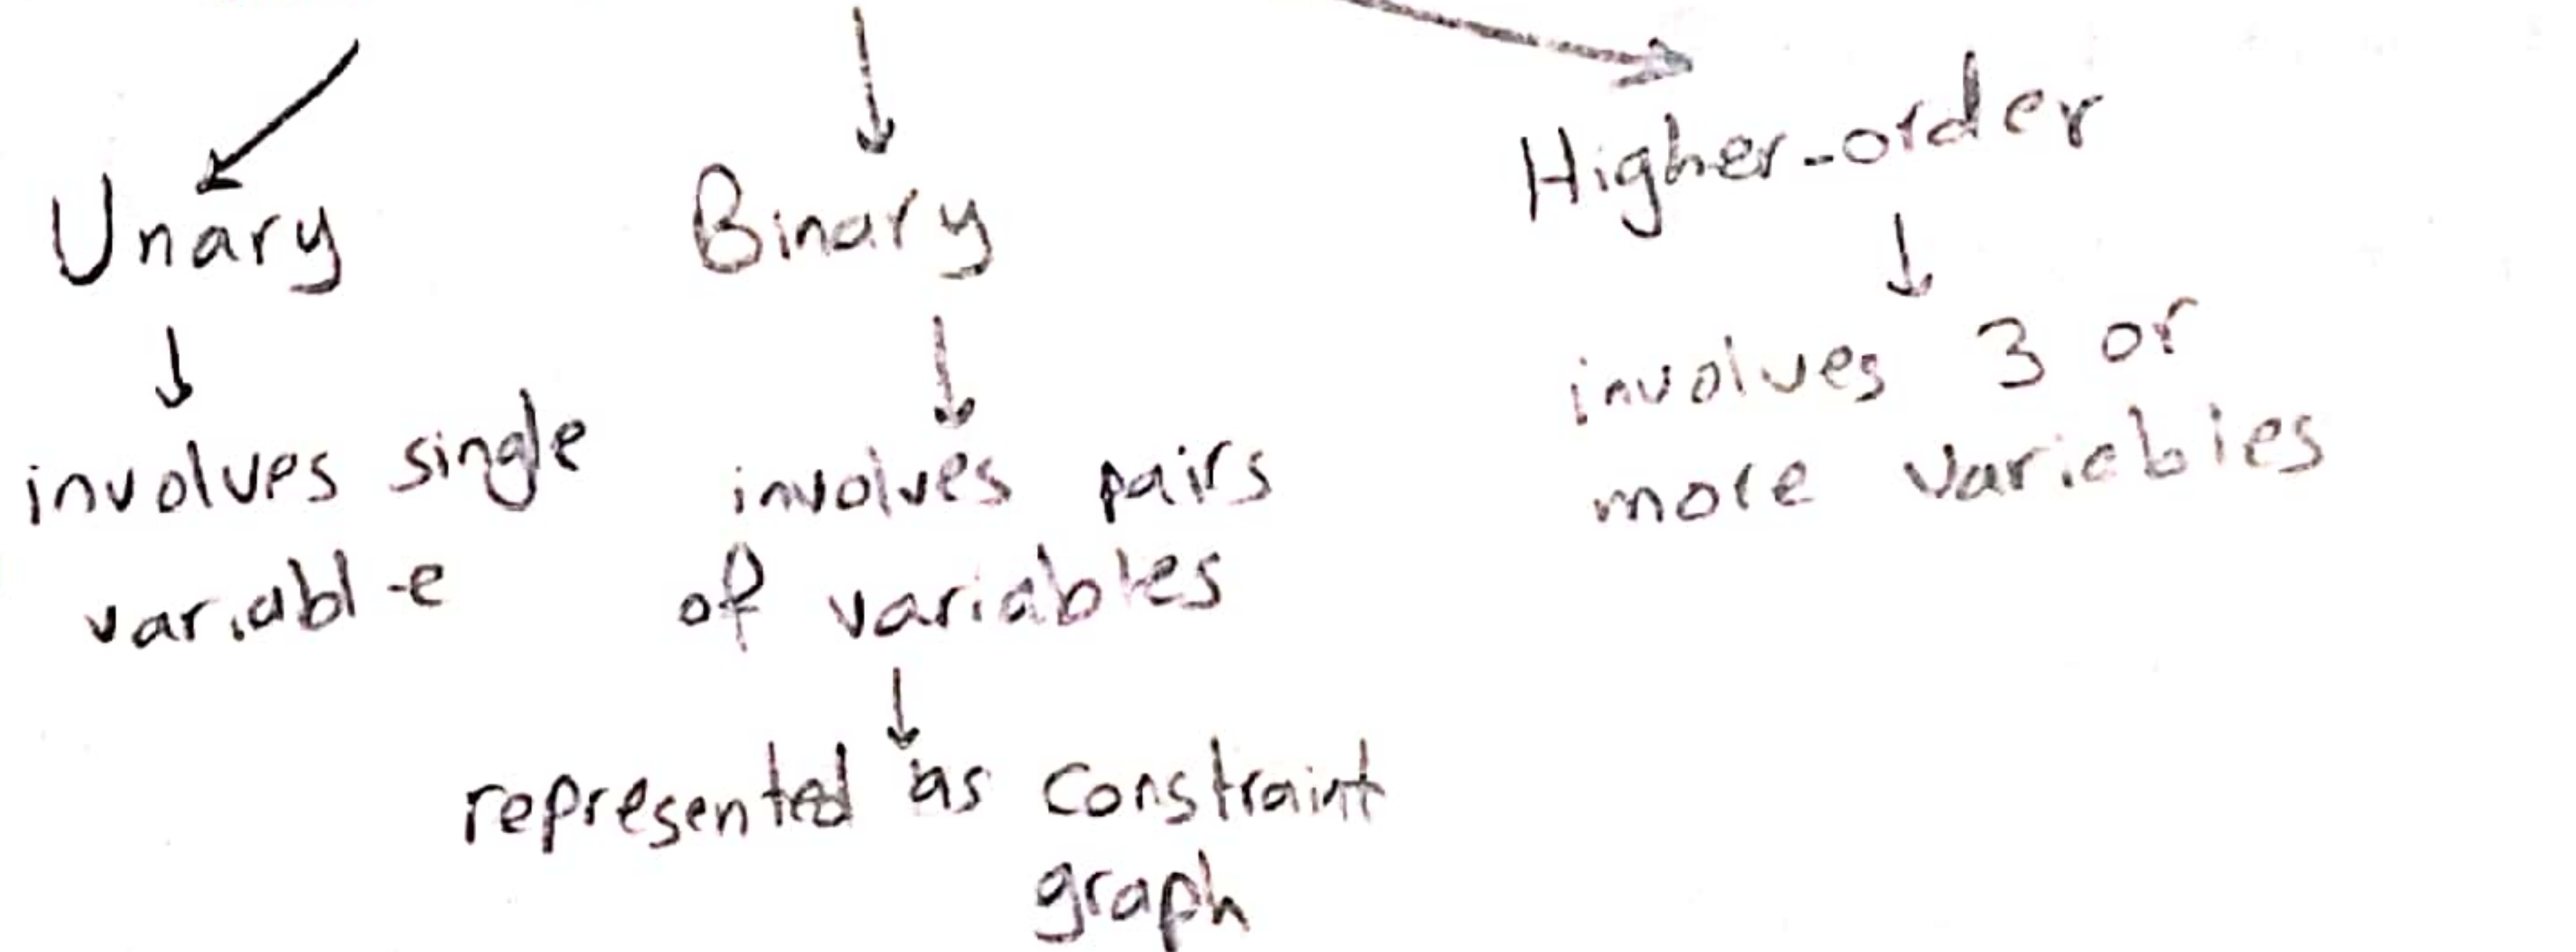 Unary
involves single
variabl-e
Binary
involves pairs
of variables
represented as constraint
graph
Higher-order
involves 3 or
more variables